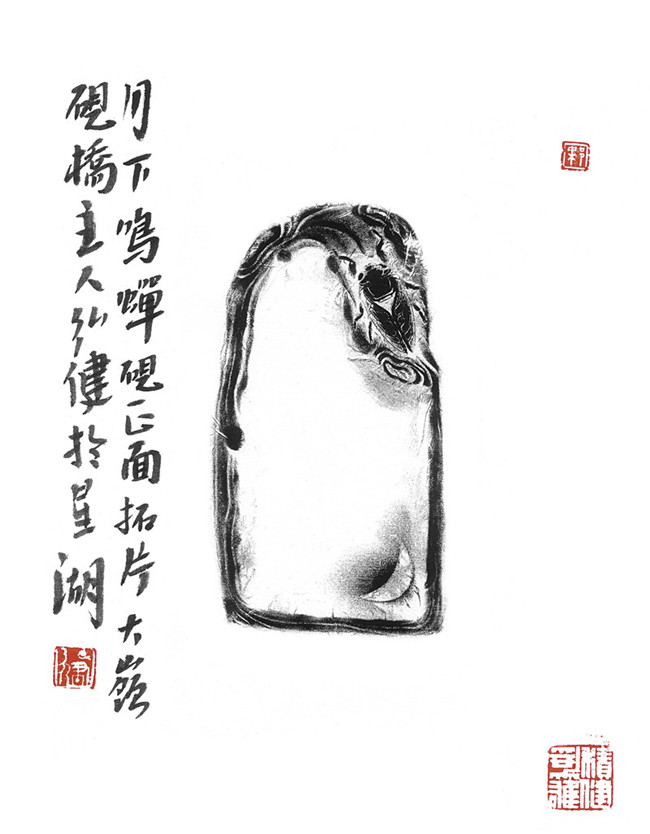 月下鳴蟬硯正面拓片大嶺
硯橋主人弘健於星湖